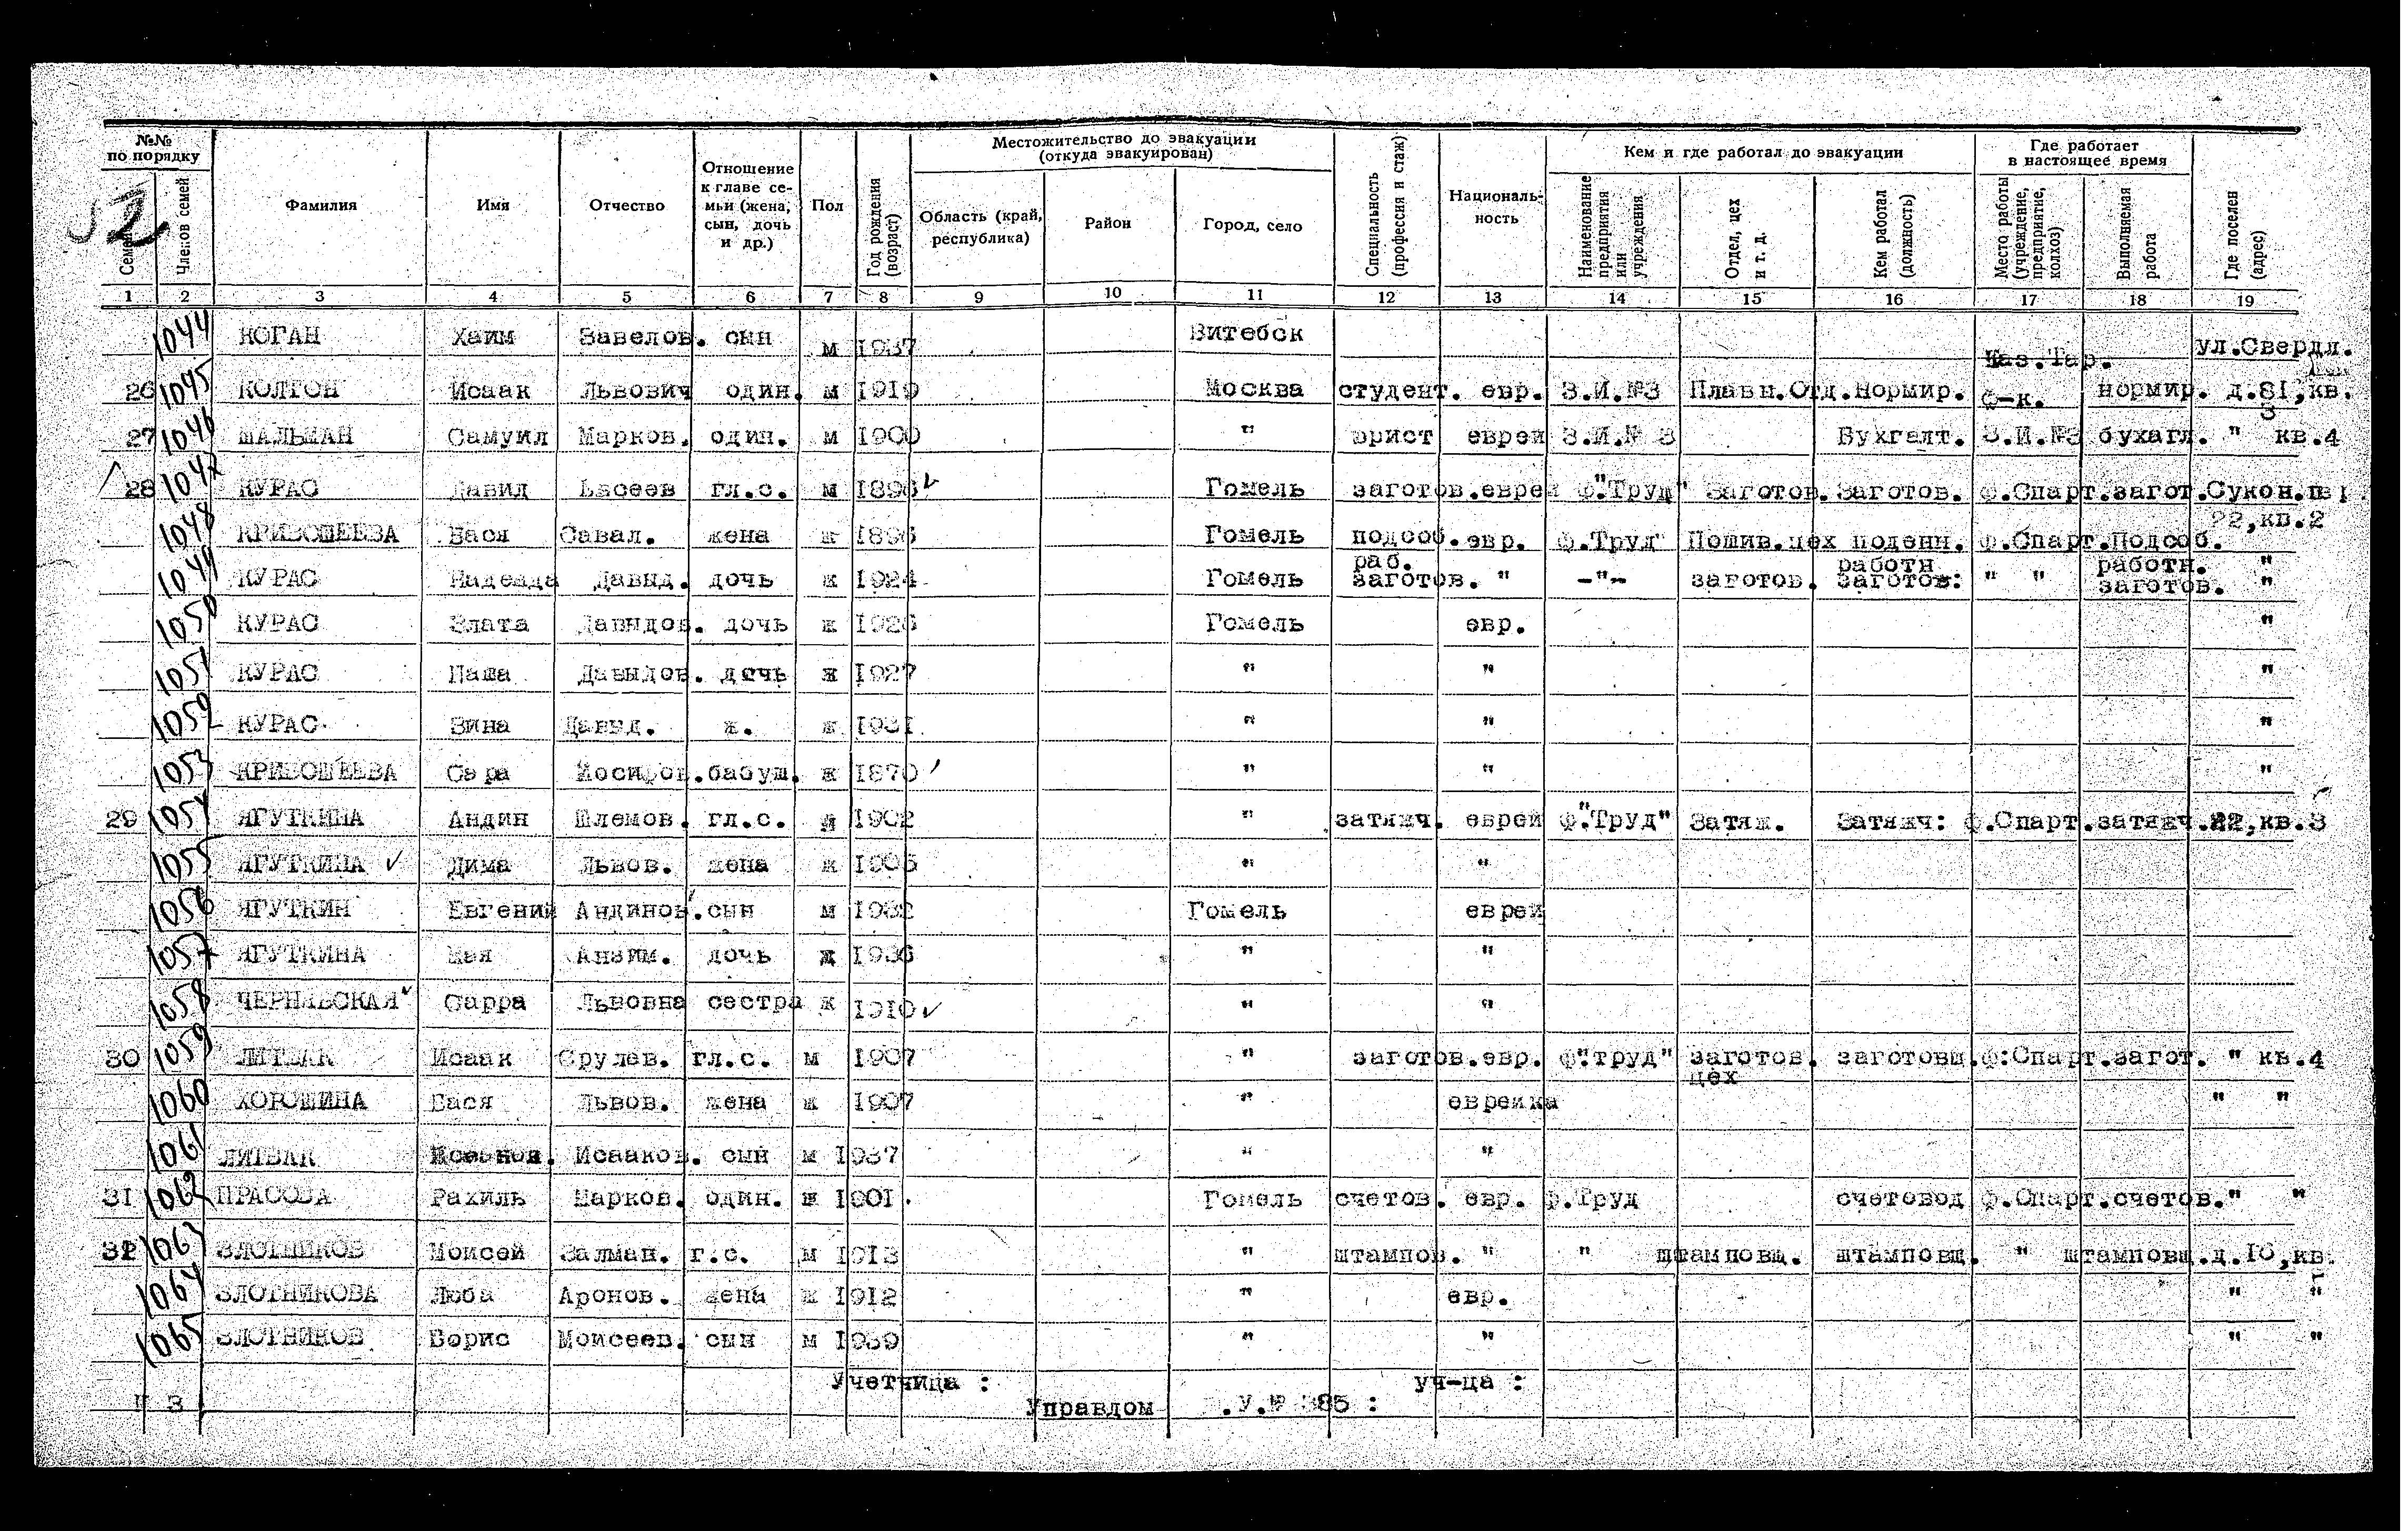 №№ по порядку
Местожительство до эвакуации (откуда эвакуирован)
Кем и где работал до эвакуации
Где работает в настоящее время
Семей
Членов семей
Фамилия
Имя
Отчество
Отношение к главе семьи (жена, сын, дочь и др.)
Пол
Год рождения (возраст)
Область (край, республика)
Район
Город, село
Специальность (профессия и стаж)
Националь-ность
Наименование предприятия или учреждения
Отдел, цех и т. д.
Кем работал (должность)
Место работы (учреждение, предприятие, колхоз)
Выполняемая работа
Где поселен (адрес)
1 2 3 4 5 6 7 8 9 10 11 12 13 14 15 16 17 18 19
1044 КОГАН Хаим Завелов. сын м 1937 Витебск ул.Свердл.
26 1045 КОЛТОН Исаак Львович один. м 1919 Москва студент. евр. З.И.№3 Плавн.Отд.Нормир. Каз.Тар. Ф-к. нормир. д.81,кв. 3
27 1046 ШАЛЬМАН Самуил Марков. один. м 1900 " юрист еврей З.И.№ 3 Бухгалт. З.И.№3 бухагл. " кв.4
28 1047 КУРАС Давид Евсеев гл.с. м 1896 Гомель заготов.еврей ф."Труд" Заготов. Заготов. ф.Спарт.загот.Сукон.п
22,кв.2
1048 КРИВОШЕЕВА Бася Савал. жена ж 1896 Гомель подсоб. раб. евр. ф.Труд Пошив.цех поденн. работн ф.Спарт.Подсоб. работн. "
1049 КУРАС Надежда Давыд. дочь ж 1924 Гомель заготов. " -"- заготов. заготов: " " заготов. "
1050 КУРАС Злата Давыдов. дочь ж 1926 Гомель евр. "
1051 КУРАС Паша Давыдов. дочь ж 1927 " " "
1052 КУРАС Зина Давыд. ж. ж 1931 " " "
1053 КРИВОШЕЕВА Сара Иосифов.бабуш. ж 1870 " " "
29 1054 ЯГУТКИНА Андин Шлемов. гл.с. м 1902 " затяжч. еврей ф."Труд" Затяж. Затяжч: ф.Спарт.затяжч.22,кв.3
1055 ЯГУТКИНА Дима Львов. жена ж 1906 " "
1056 ЯГУТКИН Евгений Андинов.сын м 1932 Гомель еврей
1057 ЯГУТКИНА Мая Анзим. дочь ж 1936 " "
1058 ЧЕРНЯВСКАЯ Сарра Львовна сестра ж 1910 " "
30 1059 ЛИТВАК Исаак Срулев. гл.с. м 1907 " заготов.евр. ф"труд" заготов. цех заготовщ.ф:Спарт.загот. " кв.4
1060 ХОРОШИНА Бася Львов. жена ж 1907 " еврейка " "
1061 ЛИТВАК Исааков. сын м 1937 " "
31 1062 ПРАСОВА Рахиль Марков. один. ж 1901. Гомель счетов. евр. ф.Труд счетовод ф.Спарт.счетов." "
32 1063 ЗЛОТНИКОВ Моисей Залман. г.с. м 1913 " штампов. " " штамповщ. штамповщ. " штамповщ.д.16,кв. 1
1064 ЗЛОТНИКОВА Люба Аронов. жена ж 1912 " евр. " "
1065 ЗЛОТНИКОВ Борис Моисеев. сын м 1939 " " " "
Учетчица : уч-ца :
Управдом .У.№ 385 :